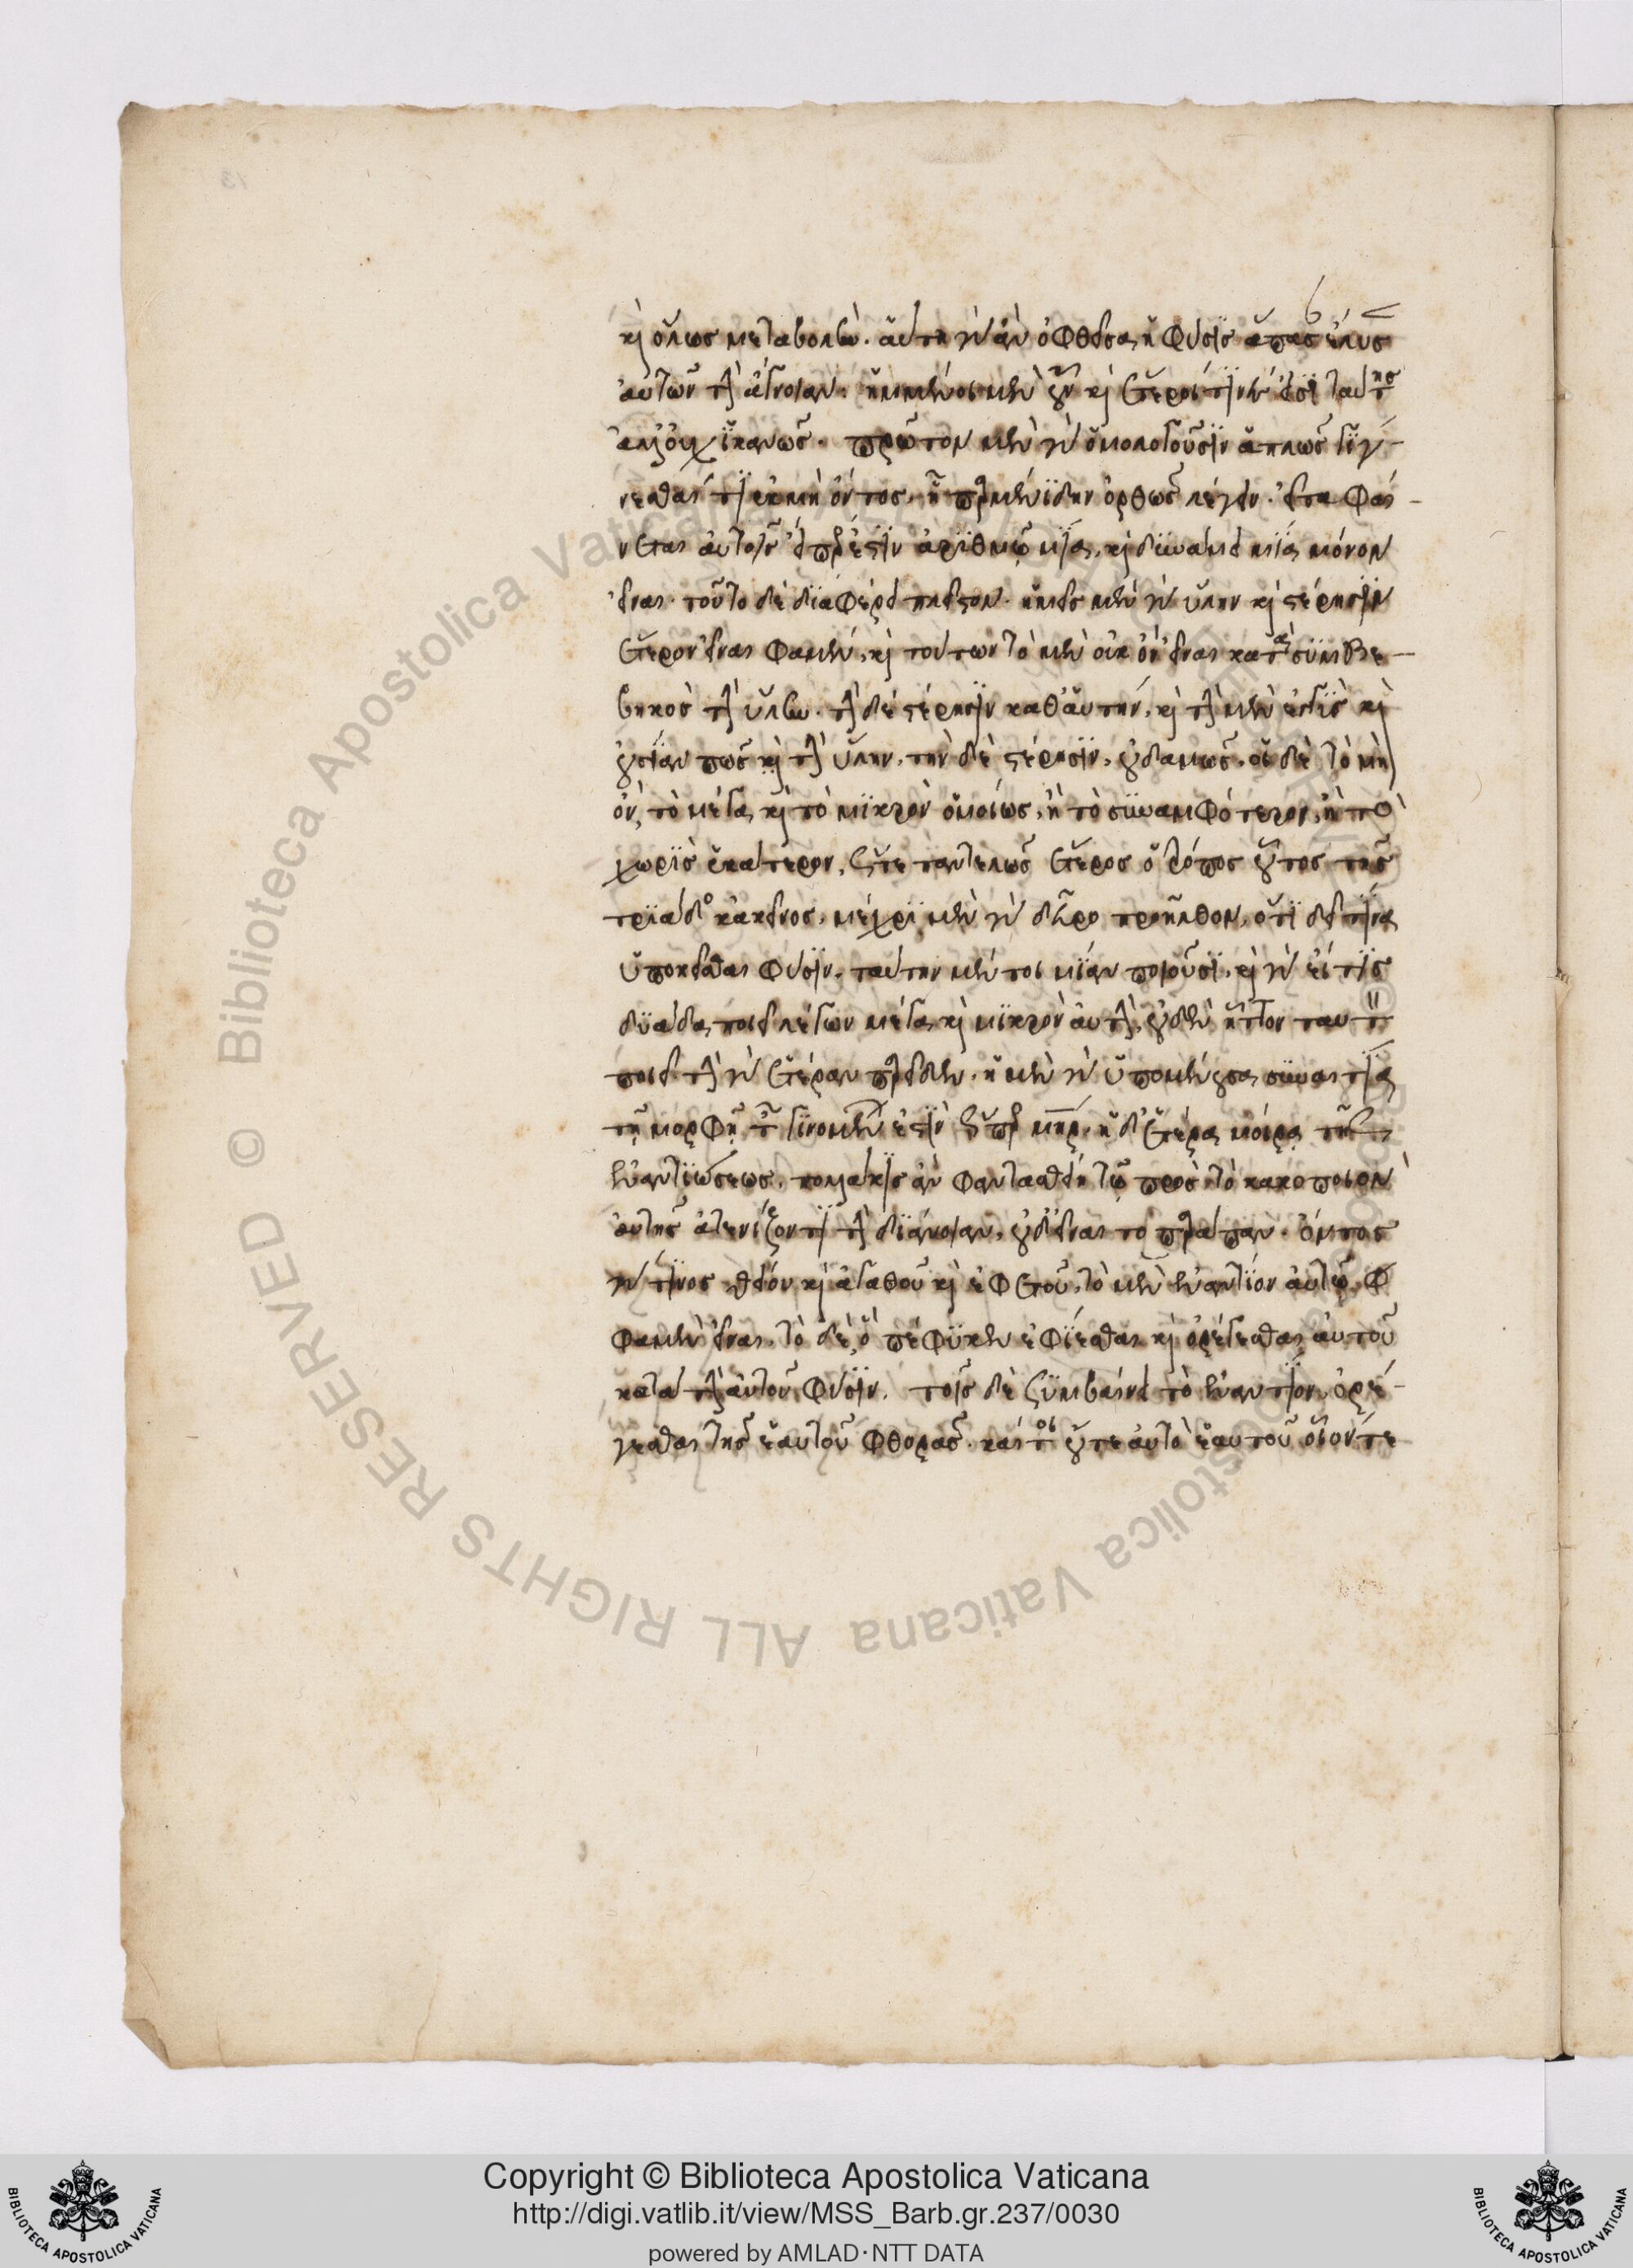 καὶ ὅλως μεταβολὴν. αὕτη γὰρ ἂν ὀφθεῖσα ἡ φύσις ἅπασ ἔλυσ
αὐτῶν τὴν ἄγνοιαν. ἡμμένοι μὲν οὖν καὶ ἕτεροί τινές εἰσι ταύτης
ἀλλ' οὐχ ἱκανῶς. πρῶτον μὲν γὰρ ὁμολογοῦσιν ἁπλῶς γίγ-
νεσθαί τι ἐκ μὴ ὄντος, ᾗ παρμενίδην ὀρθῶς λέγειν. εἶτα φαί-
νεται αὐτοῖς εἴπερ ἐστὶν ἀριθμῷ μία, καὶ δυνάμει μία μόνον
εἶναι. τοῦτο δὲ διαφέρει πλεῖστον. ἡμεῖς μὲν γὰρ ὕλην καὶ στέρησιν
ἕτερον εἶναι φαμέν, καὶ τούτων τὸ μὲν οὐκ ὂν εἶναι κατὰ συμβε-
βηκὸς τὴν ὕλην. τὴν δὲ στέρησιν καθ' αὑτήν, καὶ τὴν μὲν ἐγγὺς καὶ
οὐσίαν πως καὶ τὴν ὕλην, τὴν δὲ στέρησιν, οὐδαμῶς. οἱ δὲ τὸ μὴ
ὂν, τὸ μέγα καὶ τὸ μικρὸν ὁμοίως, ἢ τὸ συναμφότερον, ἢ τὸ
χωρὶς ἑκάτερον, ὥστε παντελῶς ἕτερος ὁ τρόπος οὗτος τῆς
τριάδος κἀκεῖνος. μέχρι μὲν γὰρ δεῦρο προῆλθον, ὅτι δεῖ τινα
ὑποκεῖσθαι φύσιν. ταύτην μέντοι μίαν ποιοῦσι, καὶ γὰρ εἴ τις
δυάδα ποιεῖ λέγων μέγα καὶ μικρὸν αὐτὴν, οὐδὲν ἧττον ταυτὸ
ποιεῖ. τὴν γὰρ ἑτέραν παρεῖδεν. ἡ μὲν γὰρ ὑπομένουσα συναιτία
τῇ μορφῇ τῶν γινομένων ἐστὶν ὥσπερ μήτηρ, ἡ δ' ἑτέρα μοῖρα τῆς
ἐναντιώσεως, πολλάκις ἂν φαντασθείη τῷ πρὸς τὸ κακοποιὸν
αὐτῆς ἀτενίζοντι τὴν διάνοιαν, οὐδ' εἶναι τὸ παράπαν. ὄντος
γάρ τινος θείου καὶ ἀγαθοῦ καὶ ἐφετοῦ, τὸ μὲν ἐναντίον αὐτῷ
φαμὲν εἶναι, τὸ δὲ, ὃ πέφυκεν ἐφίεσθαι καὶ ὀρέγεσθαι αὐτοῦ
κατὰ τὴν αὑτοῦ φύσιν. τοῖς δὲ ξυμβαίνει τὸ ἐναντίον, ὀρέ-
γεσθαι τῆς ἑαυτοῦ φθορᾶς. καίτοι οὔτε αὐτὸ ἑαυτοῦ οἷόν τε
© Biblioteca Apostolica Vaticana ALL RIGHTS RESERVED
Copyright © Biblioteca Apostolica Vaticana
http://digi.vatlib.it/view/MSS_Barb.gr.237/0030
powered by AMLAD·NTT DATA
BIBLIOTECA APOSTOLICA VATICANA
BIBLIOTECA APOSTOLICA VATICANA